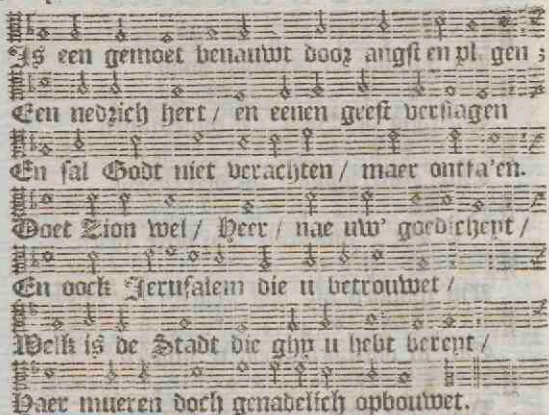 Is een gemoet benauwt door angst en pl gen ;
Een nedrich hert / en eenen geest verslagen
En sal Godt niet verachten / maer ontfa'en.
Doet Zion wel / Heer / nae uw' goedicheyt /
En oock Jerusalem die u betrouwet /
Welk is de Stadt die ghy u hebt bereyt /
Haer mueren doch genadelich opbouwet.